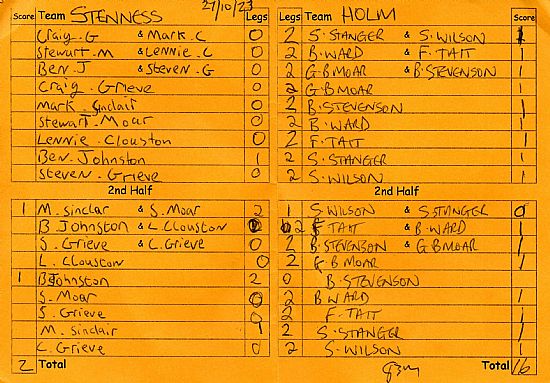 Score Team STENNESS 27/10/23 Legs Legs Team HOLM Score
Craig.G & Mark.C 0 2 S.STANGER & S.WILSON 1
Stewart.M & Lennie.C 0 2 B.WARD & F.TAIT 1
Ben.J & Steven.G 0 2 G.B MOAR & B.STEVENSON 1
Craig.Grieve 0 2 G.B MOAR 1
Mark.Sinclair 0 2 B.STEVENSON 1
Stewart.Moar 0 2 B.WARD 1
Lennie.Clouston 0 2 F.TAIT 1
Ben.Johnston 1 2 S.STANGER 1
Steven.Grieve 0 2 S.WILSON 1
2nd Half 2nd Half
1 M.Sinclar & S.Moar 2 1 S.WILSON & S.STANGER 0
B.Johnston & L.Clouston 2 F TAIT & B.WARD 1
S.Grieve & C.Grieve 0 2 B.STEVENSON & G B MOAR 1
L.Clouston 0 2 B MOAR 1
1 B Johnston 2 0 B.STEVENSON
S.Moar 0 2 B WARD 1
S.Grieve 0 2 F.TAIT 1
M.Sinclair 1 2 S.STANGER 1
C.Grieve 0 2 S.WILSON 1
2 Total Total 16